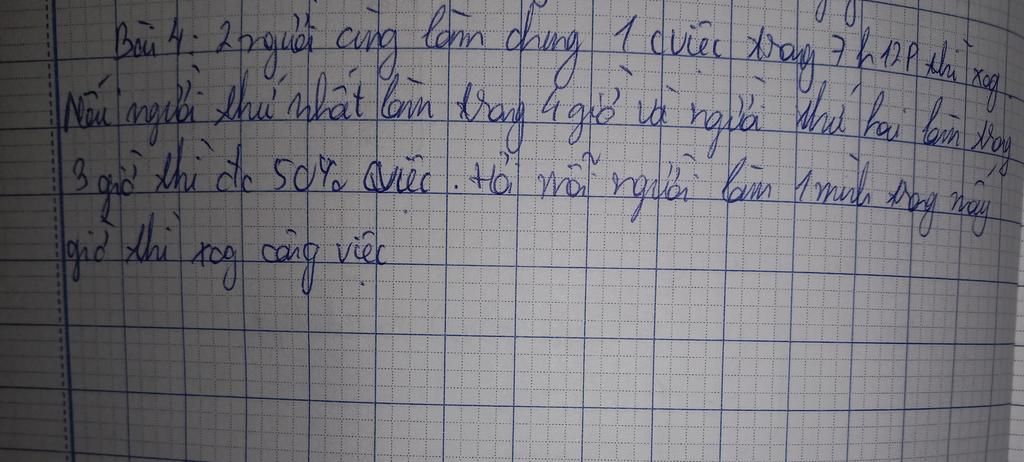 Bài 4: 2 người cùng làm chung 1 cviệc trong 7h12p thì xog.
Nếu người thứ nhất làm trong 4 giờ và người thứ hai làm trog
3 giờ thì đc 50% cviệc. Hỏi mỗi người làm 1 mình trog mấy
giờ thì xog công việc